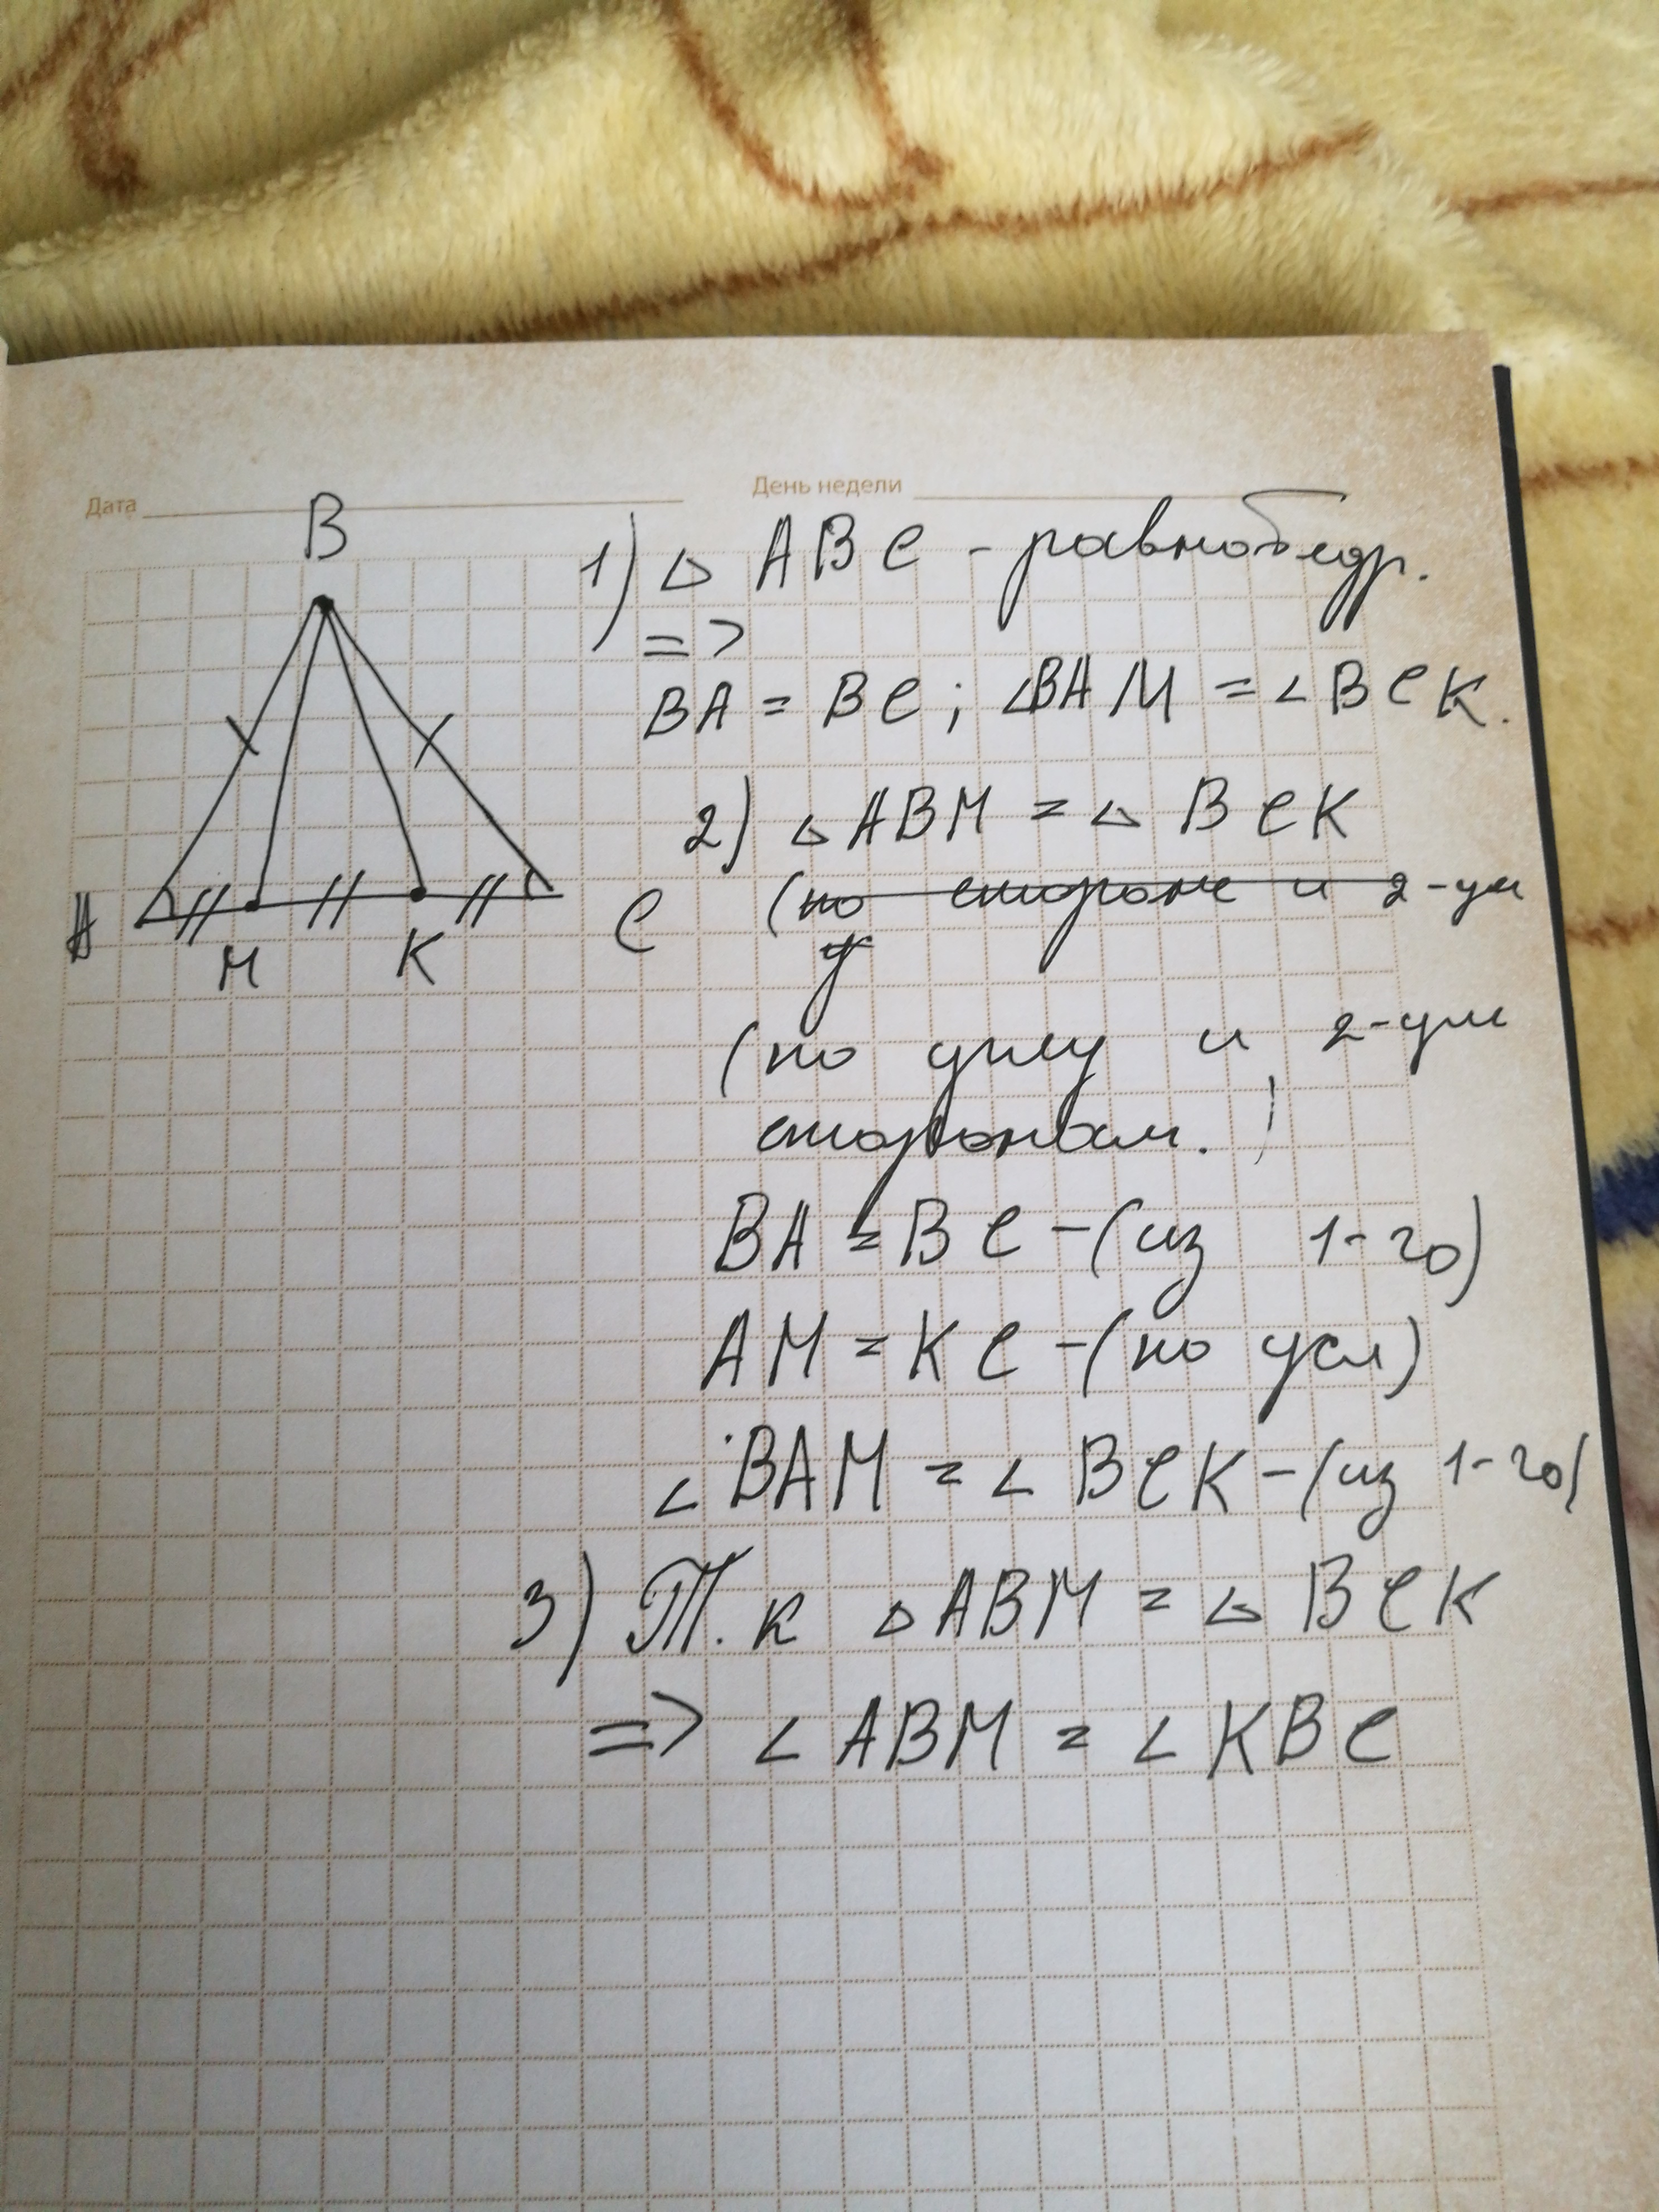 Дата
День недели
B
A
M
K
C
1) △ ABC - равнобедр.
=>
BA = BC; ∠BAM = ∠BCK.
2) △ABM = △ BCK
(по стороне и 2-ум
у
(по углу и 2-ум
сторонам.)
BA = BC - (из 1-го)
AM = KC - (по усл)
∠BAM = ∠BCK - (из 1-го)
3) Т.к △ABM = △ BCK
=> ∠ABM = ∠KBC